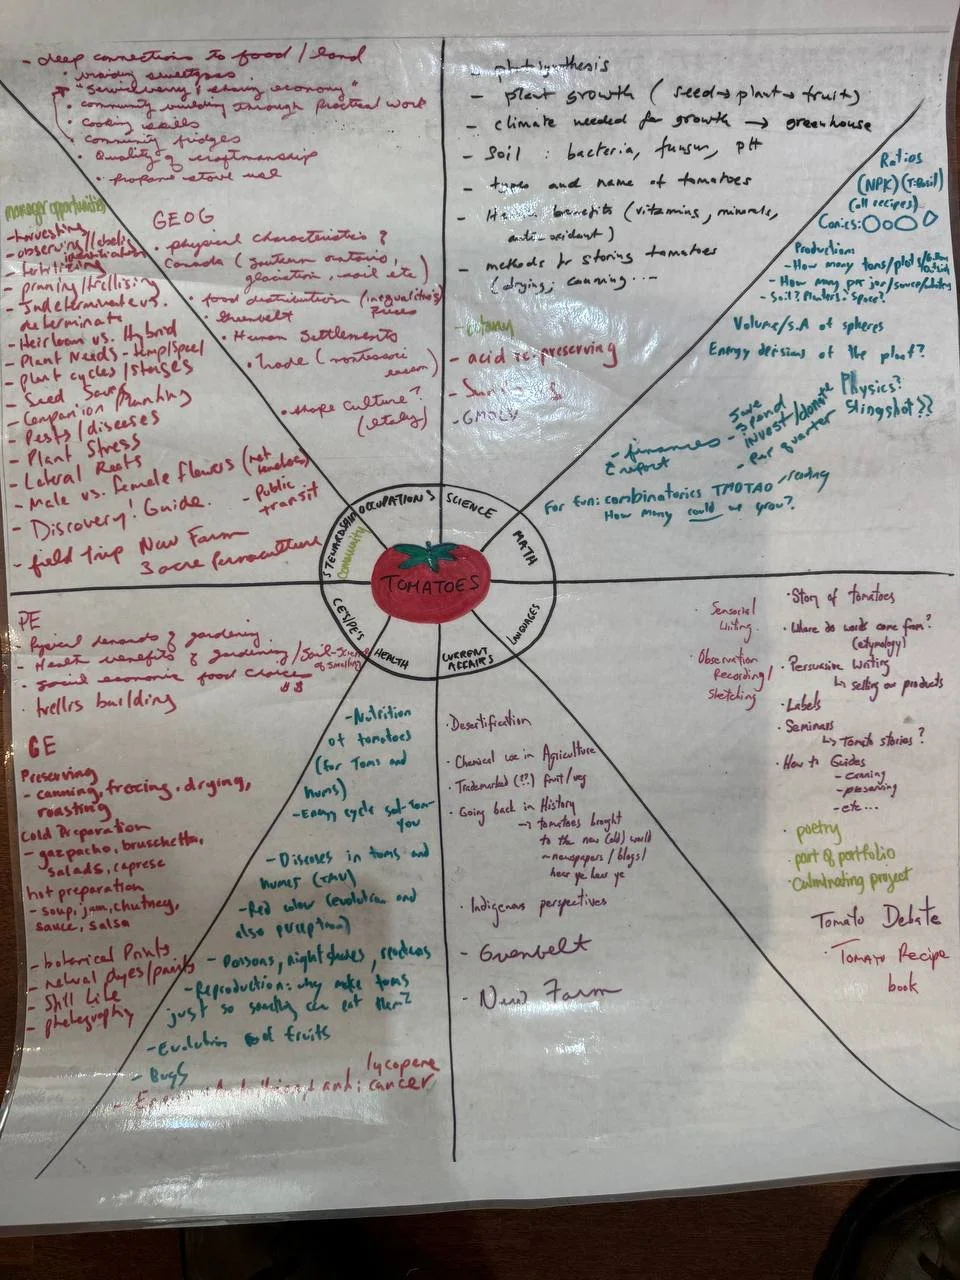 - deep connections to food / land
• braiding sweetgrass
"Serviceberry: sharing economy"
• community building through practical work
• cooking skills
• community fridges
• Quality of craftmanship
• propane stove use
GEOG
• physical characteristics of
Canada (southern ontario,
glaciation, soil etc)
• food distribution (inequalities)
prices
• Greenbelt
• Human Settlements
• trade (montessori
• shape culture?
(italy)
manager opportunities
- harvesting
- observing/labelling
identification
- fertilizing
- pruning/trellising
- Indeterminate vs.
determinate
- Heirloom vs. Hybrid
- Plant Needs - temp/space/
- plant cycles/stages
- Seed
- Companion Planting
- Pests / diseases
- Plant Stress
- Lateral Roots
- Male vs. female flowers (not
tomatoes)
- Discovery! Guide.
- Public
transit
- field trip New Farm
3 acre permaculture
- photosynthesis
- plant growth (seed → plant → fruits)
- climate needed for growth → greenhouse
- soil : bacteria, fungus, pH
- types and name of tomatoes
- Health benefits (vitamins, minerals,
antioxidant)
- methods for storing tomatoes
(drying, canning ...
- botany
- acid in preserving
- GMOs
Ratios
(NPK) (T:Basil)
(all recipes)
Conics:
Production:
- How many tons/plot
- How many per jar/sauce/
- Soil? Planters? Space?
Volume/S.A of spheres
Energy decisions of the plant?
Physics?
Slingshot??
- finances
- Save
Spend
invest/donate
- per quarter
For fun: combinatorics TMOTAO reading
How many could we grow?
STEWARDSHIP
Community
OCCUPATIONS
SCIENCE
MATH
LANGUAGES
CURRENT
AFFAIRS
HEALTH
CE'S/PE'S
TOMATOES
PE
- Physical demands of gardening.
- Health benefits of gardening / Soil-Science
of smelling
- social economic food choices
$$
- trellis building
CE
Preserving
- canning, freezing, drying,
roasting
Cold Preparation
- gazpacho, bruschetta,
salads, caprese
hot preparation
- soup, jam, chutney,
sauce, salsa
- botanical Prints
- natural dyes/paints
- Still Life
- photography
- Nutrition
of tomatoes
(for Toms and
hums)
- Energy cycle
you
- Diseases in toms and
humes (TMV)
- Red colour (evolution and
also perception)
- Poisons, nightshades,
- Reproduction: why make toms
just so something can eat them?
- Evolution of fruits
- Bugs
lycopene
anti: cancer
• Desertification
• Chemical use in Agriculture
• Trademarked (??) fruit/veg
• Going back in History
→ tomatoes brought
to the new (old) world
~ newspapers / blogs/
hear ye hear ye
• Indigenous perspectives
- Greenbelt
• New Farm
Sensorial
Writing
• Observation
Recording/
Sketching
• Story of tomatoes
• Where do words come from?
(etymology)
• Persuasive Writing
↳ selling our products
• Labels
• Seminars
↳ Tomato stories?
• How to Guides
- canning
- preserving
- etc...
• poetry
• part of portfolio
• Culminating project
Tomato Debate
• Tomato Recipe
book